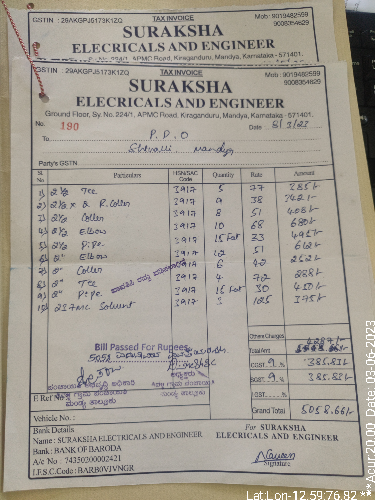 GSTIN : 29AKGPJ5173K1ZQ
TAX INVOICE
Mob : 9019482559
9008354629
SURAKSHA
ELECRICALS AND ENGINEER
GSTIN : 29AKGPJ5173K1ZQ
TAX INVOICE
Mob : 9019482559
9008354629
SURAKSHA
ELECRICALS AND ENGINEER
Ground Floor, Sy. No. 224/1, APMC Road, Kiraganduru, Mandya, Karnataka - 571401.
No. 190
Date 8/3/23
To P.D.O
Mandya
Party's GSTN
Sl. No Particulars HSN/SAC Code Quantity Rate Amount
1) 2½ Tee 3917 5 77 385/-
2) 2½ x 2 R.Coller 3917 9 38 342/-
3) 2½ Coller 3917 8 51 408/-
4) 2½ Elbow 3917 10 68 680/-
5) 2½ Pipe 3917 15 Fat 33 495/-
6) 2" Elbow 3917 12 51 612/-
7) 2" Coller 3917 6 42 252/-
8) 2" Tee 3917 4 72 288/-
9) 2" Pipe 3917 15 Fat 30 450/-
10) 237ML Solvent 3917 3 125 375/-
Bill Passed For Rupees
5058
Others Charges
Total Amt 4287/-
CGST 9 % 385.83/-
SGST 9 % 385.83/-
IGST %
Grand Total 5058.66/-
Vehicle No. :
Bank Details
Name : SURAKSHA ELECTRICALS AND ENGINEER
Bank : BANK OF BARODA
A/c No : 74350200002421
I.F.S.C Code : BARB0VJVNGR
For SURAKSHA
ELECRICALS AND ENGINEER
Signature
Lat Lon-12.59.76.82
***Acur 20.00 Date:03-06-2023